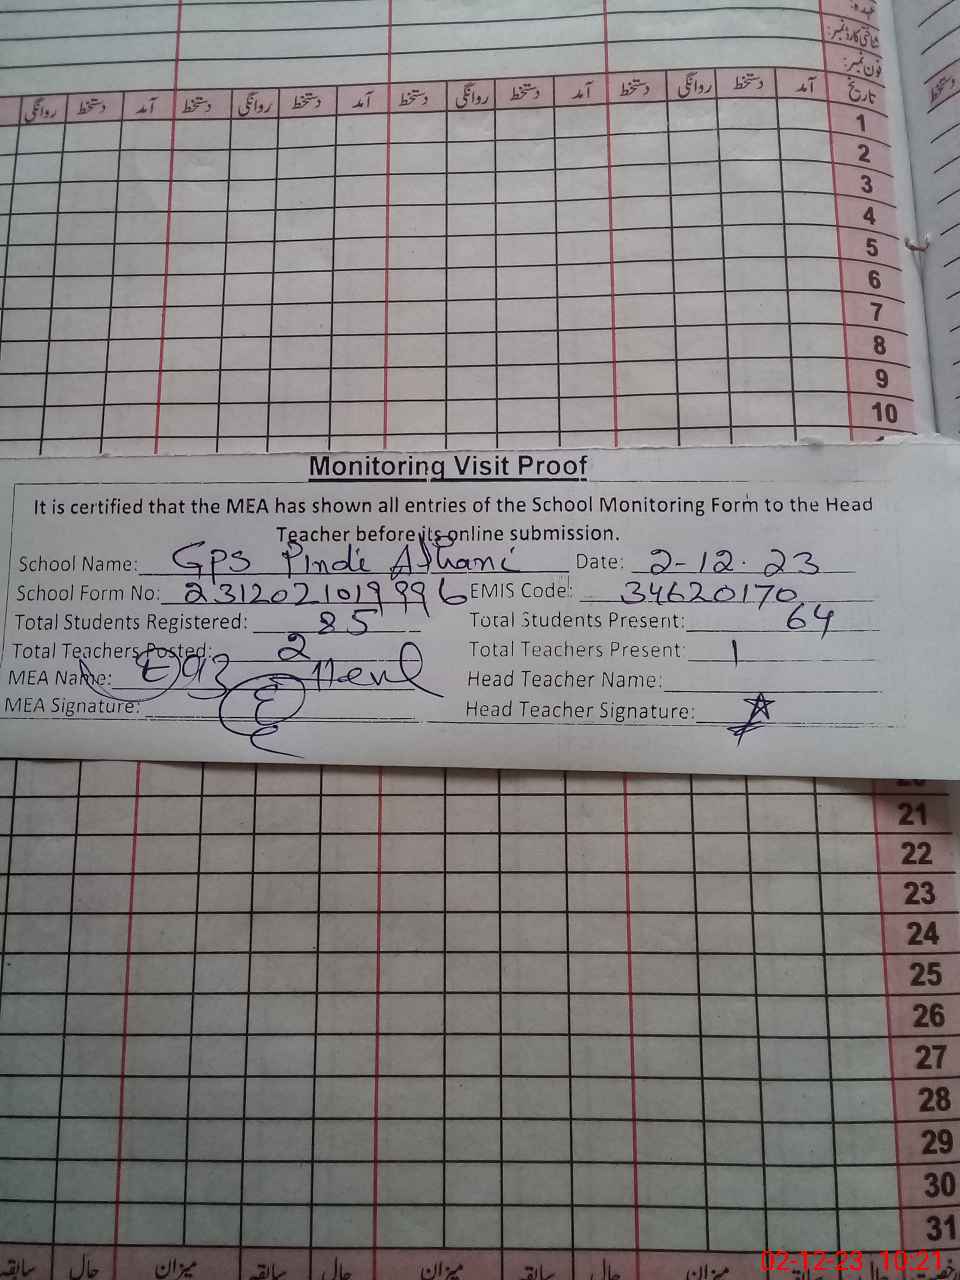 عہدہ:
شناختی کارڈ نمبر:
فون نمبر:
روانگی دستخط آمد دستخط روانگی دستخط آمد دستخط روانگی دستخط آمد دستخط روانگی دستخط آمد تاریخ
دستخط
1
2
3
4
5
6
7
8
9
10
Monitoring Visit Proof
It is certified that the MEA has shown all entries of the School Monitoring Form to the Head
Teacher before its online submission.
School Name: GPS Pindi Date: 2-12-23
School Form No: 2312021019996 EMIS Code: 34620170
Total Students Registered: 85 Total Students Present: 64
Total Teachers Posted: 2 Total Teachers Present: 1
MEA Name: Head Teacher Name:
MEA Signature: Head Teacher Signature:
21
22
23
24
25
26
27
28
29
30
31
سابقہ حال میزان سابقہ حال میزان سابقہ حال میزان
02-12-23 10:21